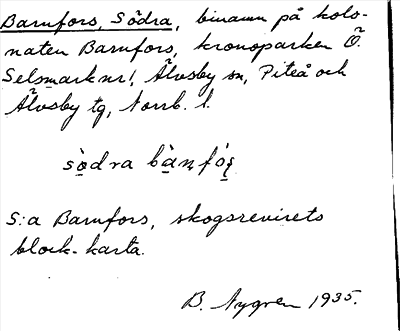 Barnfors, Södra, binamn på kolo-
naten Barnfors, kronoparken Ö.
Selsmark nr 1, Älvsby sn, Piteå och
Älvsby tg, Norrb. l.
södra bànfós̨
S:a Barnfors, skogsrevirets
block-karta.
B. Nygren 1935.